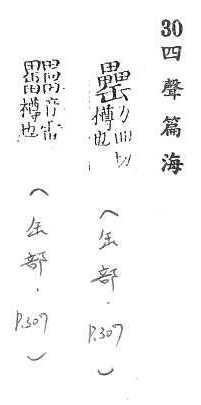 30四聲篇海
罍力切樽也（缶部．P.307）
音雷樽也（缶部．P.307）